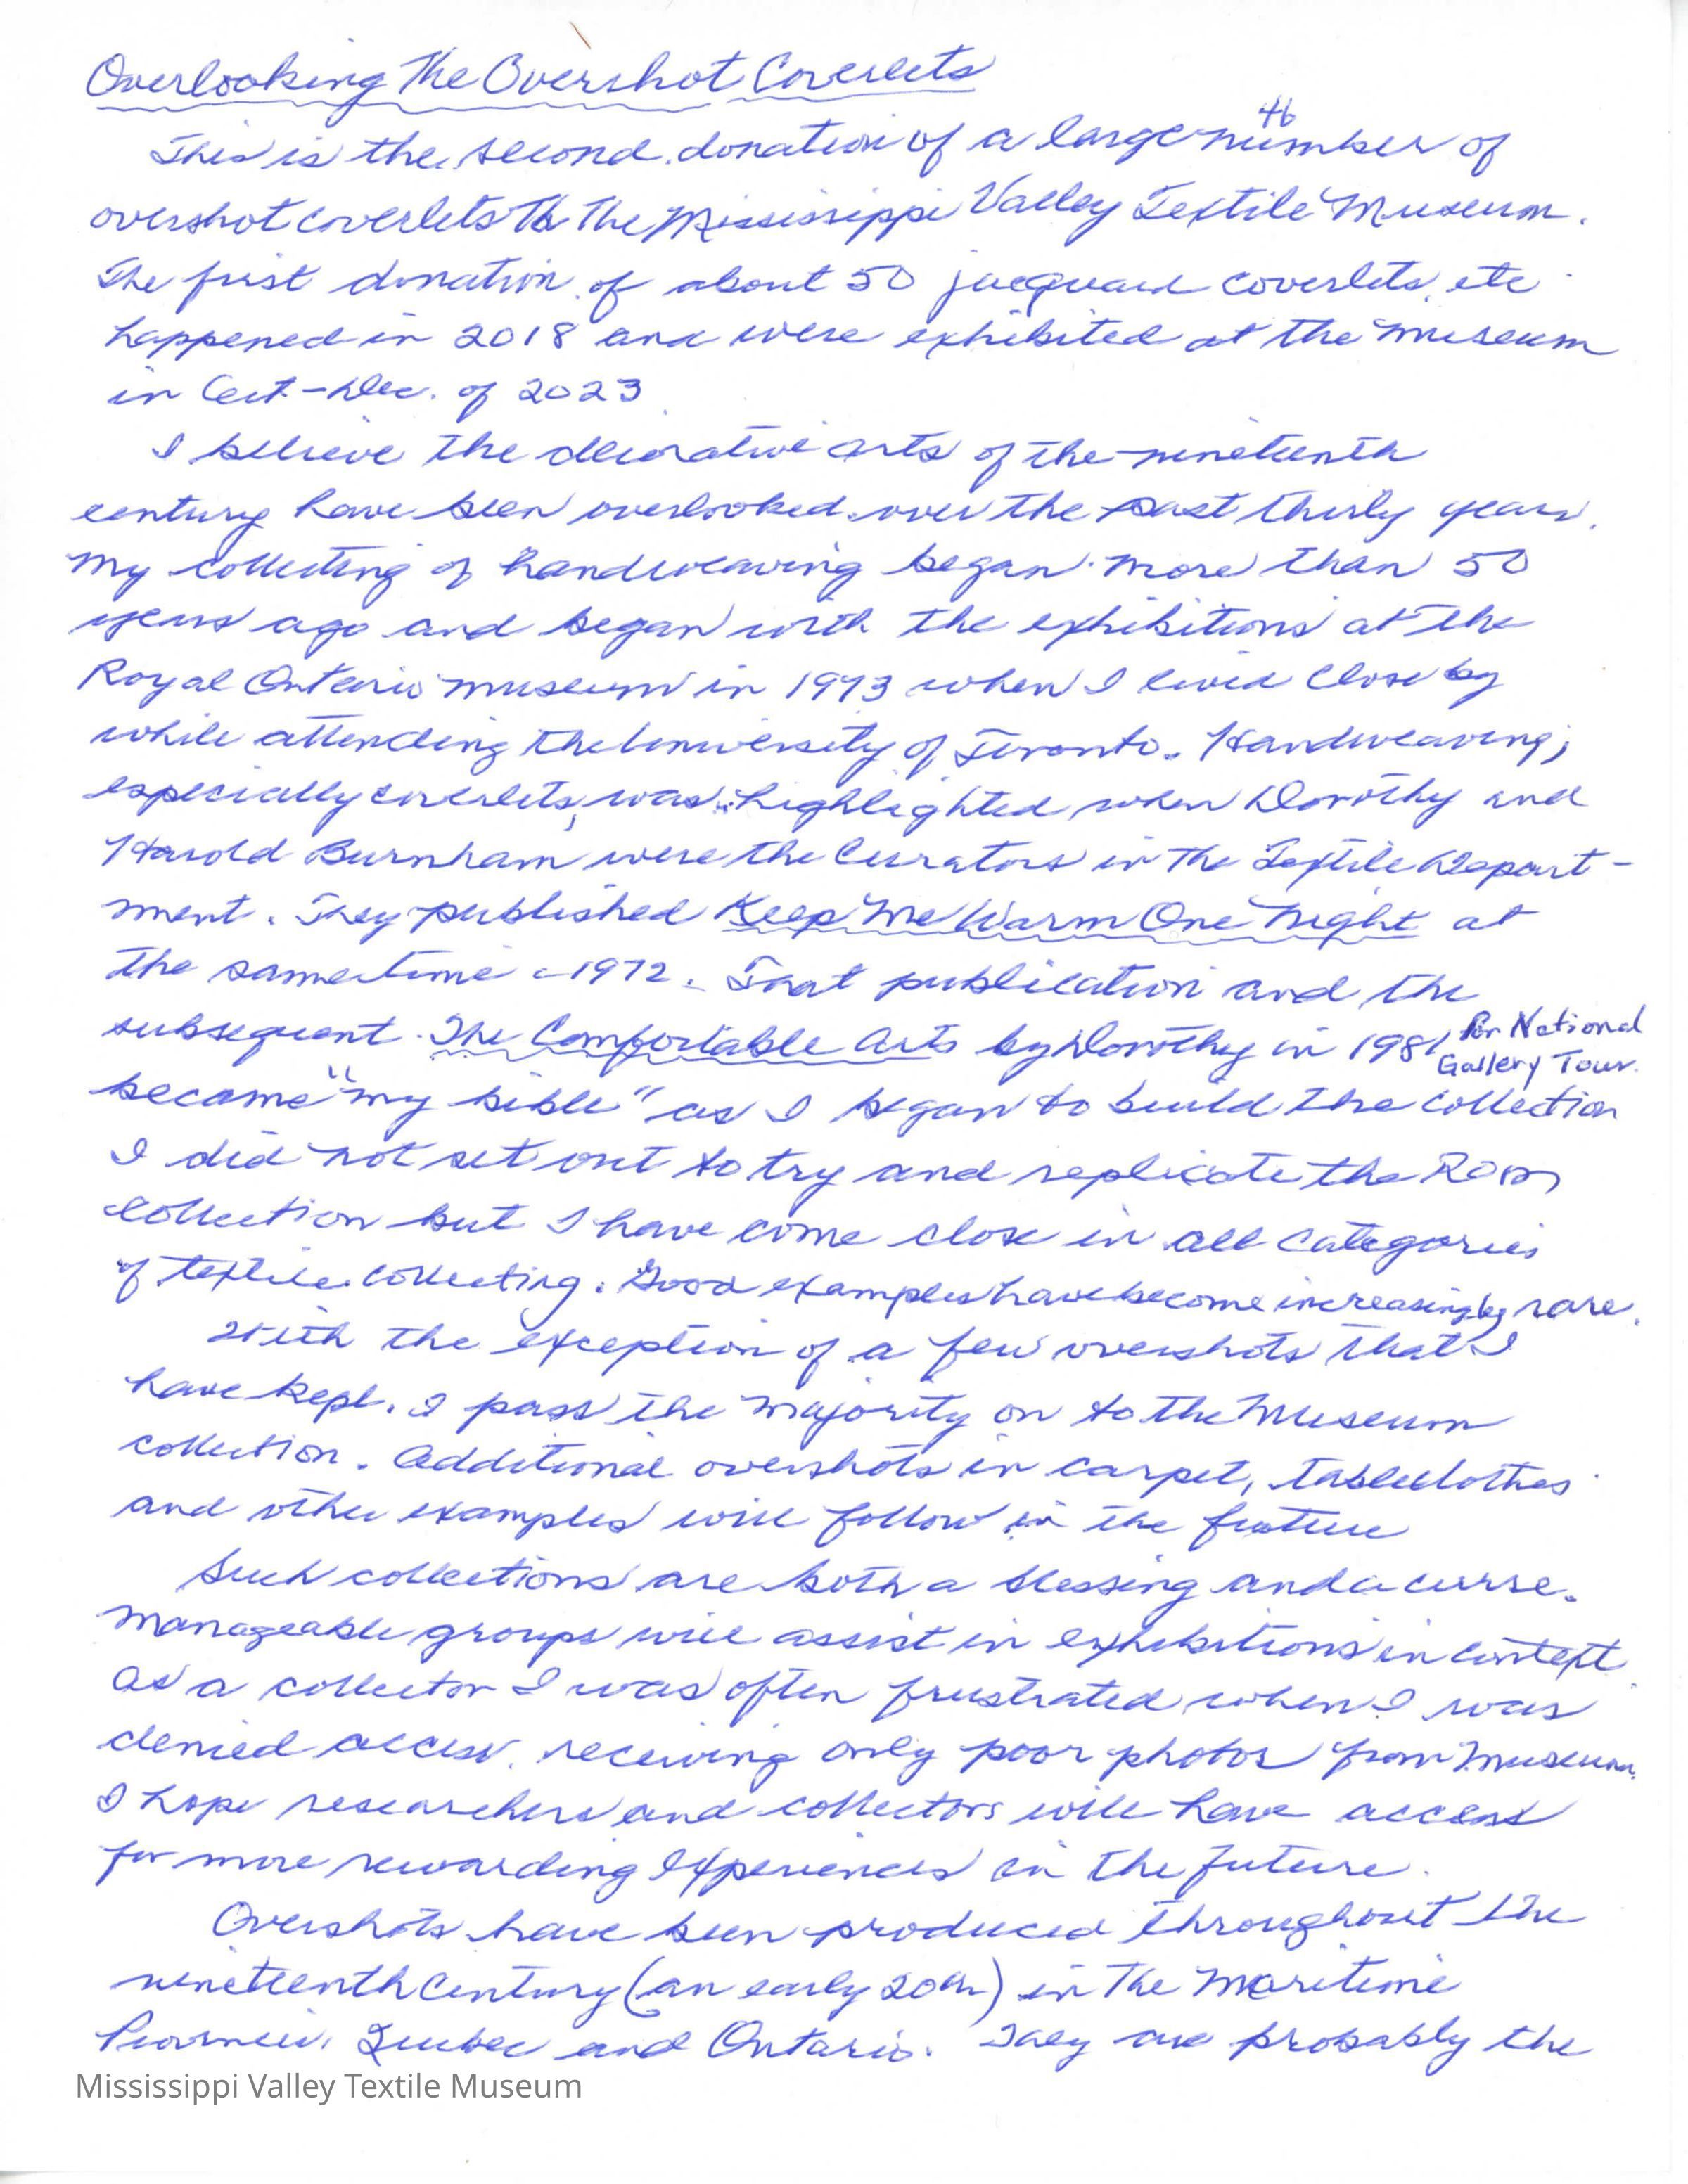 Overlooking The Overshot Coverlets
46
This is the second donation of a large number of
overshot coverlets to the Mississippi Valley Textile Museum.
The first donation of about 50 jacquard coverlets, etc
happened in 2018 and were exhibited at the museum
in Oct-Dec. of 2023
I believe the decorative arts of the nineteenth
century have been overlooked over the past thirty years.
My collecting of handweaving began more than 50
years ago and began with the exhibitions at the
Royal Ontario Museum in 1973 when I lived close by
while attending the University of Toronto. Handweaving,
especially coverlets, was highlighted when Dorothy and
Harold Burnham were the Curators in The Textile Depart-
ment. They published Keep Me Warm One Night at
the same time c1972. That publication and the
subsequent The Comfortable Arts by Dorothy in 1981 for National
Gallery Tour.
became "my bible" as I began to build the collection
I did not set out to try and replicate the ROM
collection but I have come close in all categories
of textile collecting. Good examples have become increasingly rare.
With the exception of a few overshots that I
have kept, I pass the majority on to the Museum
collection. Additional overshots in carpet, tableclothes
and other examples will follow in the future
Such collections are both a blessing and a curse.
Manageable groups will assist in exhibitions in context
As a collector I was often frustrated when I was
denied access, receiving only poor photos from museums.
I hope researchers and collectors will have access
for more rewarding experiences in the future.
Overshots have been produced throughout the
nineteenth century (an early 20th) in The Maritime
Quebec and Ontario. They are probably the
Mississippi Valley Textile Museum